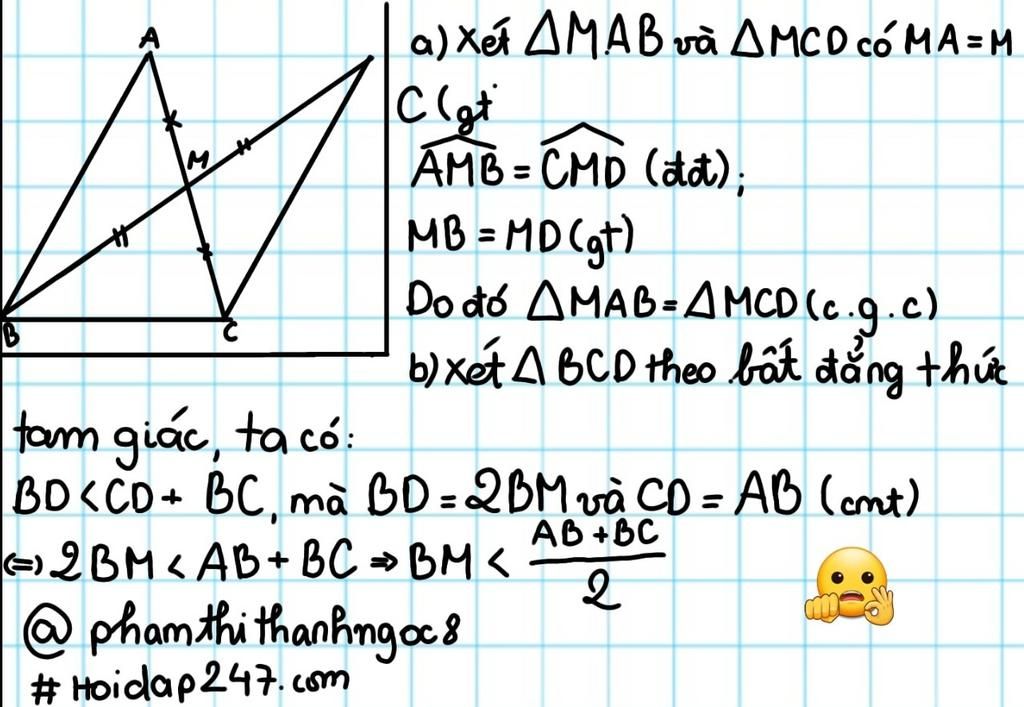 A
M
B
C
a) Xét △MAB và △MCD có MA = M
C (gt
AMB = CMD (đđ);
MB = MD (gt)
Do đó △MAB = △MCD (c.g.c)
b) Xét △BCD theo bất đẳng thức
tam giác, ta có:
BD < CD + BC, mà BD = 2BM và CD = AB (cmt)
(=) 2BM < AB + BC ⇒ BM < AB + BC / 2
@ phamthithanhngoc8
# Hoidap247.com